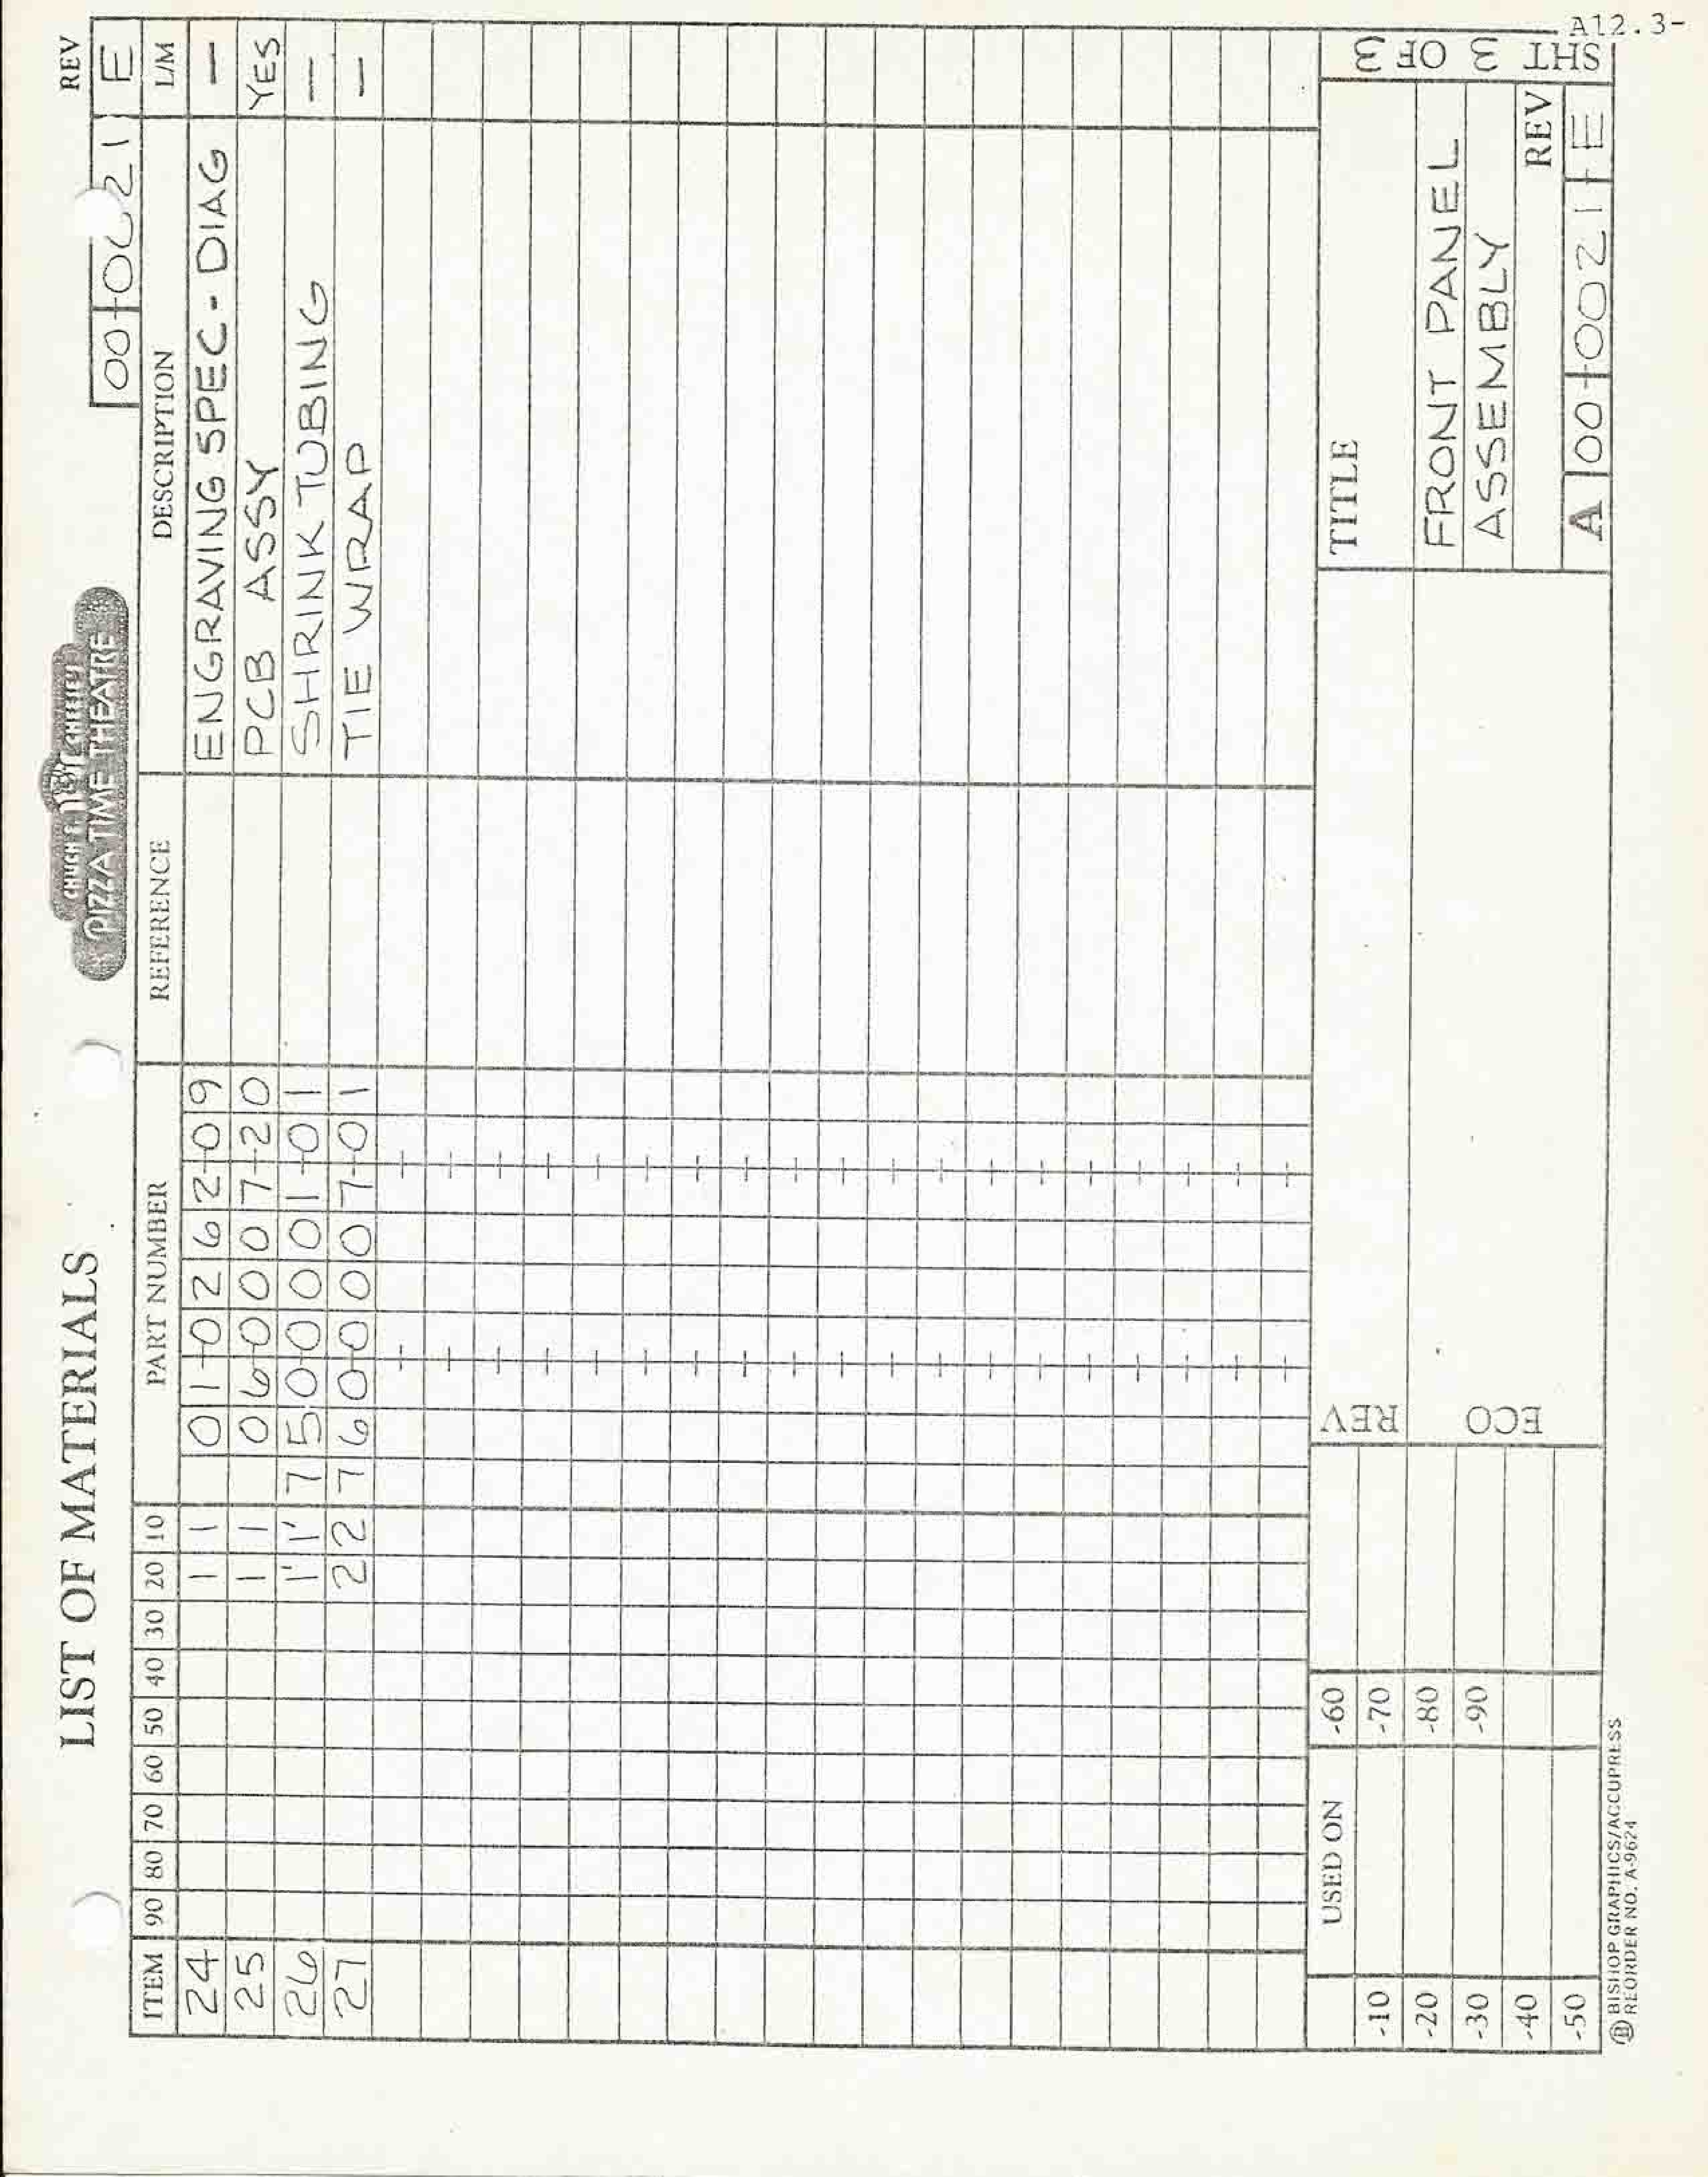 A12.3-
LIST OF MATERIALS
CHUCK E. CHEESE'S
PIZZA TIME THEATRE
REV
00-0021 E
ITEM 90 80 70 60 50 40 30 20 10 PART NUMBER REFERENCE DESCRIPTION L/M
24 1 1 01-0262-09 ENGRAVING SPEC - DIAG —
25 1 1 06-0007-20 PCB ASSY YES
26 1' 1' 750-0001-01 SHRINK TUBING —
27 2 2 760-0007-01 TIE WRAP —
USED ON
-10
-20
-30
-40
-50
-60
-70
-80
-90
REV
ECO
TITLE
FRONT PANEL
ASSEMBLY
REV
A 00-0021 E
SHT 3 OF 3
Ⓑ BISHOP GRAPHICS/ACCUPRESS
REORDER NO. A-9624